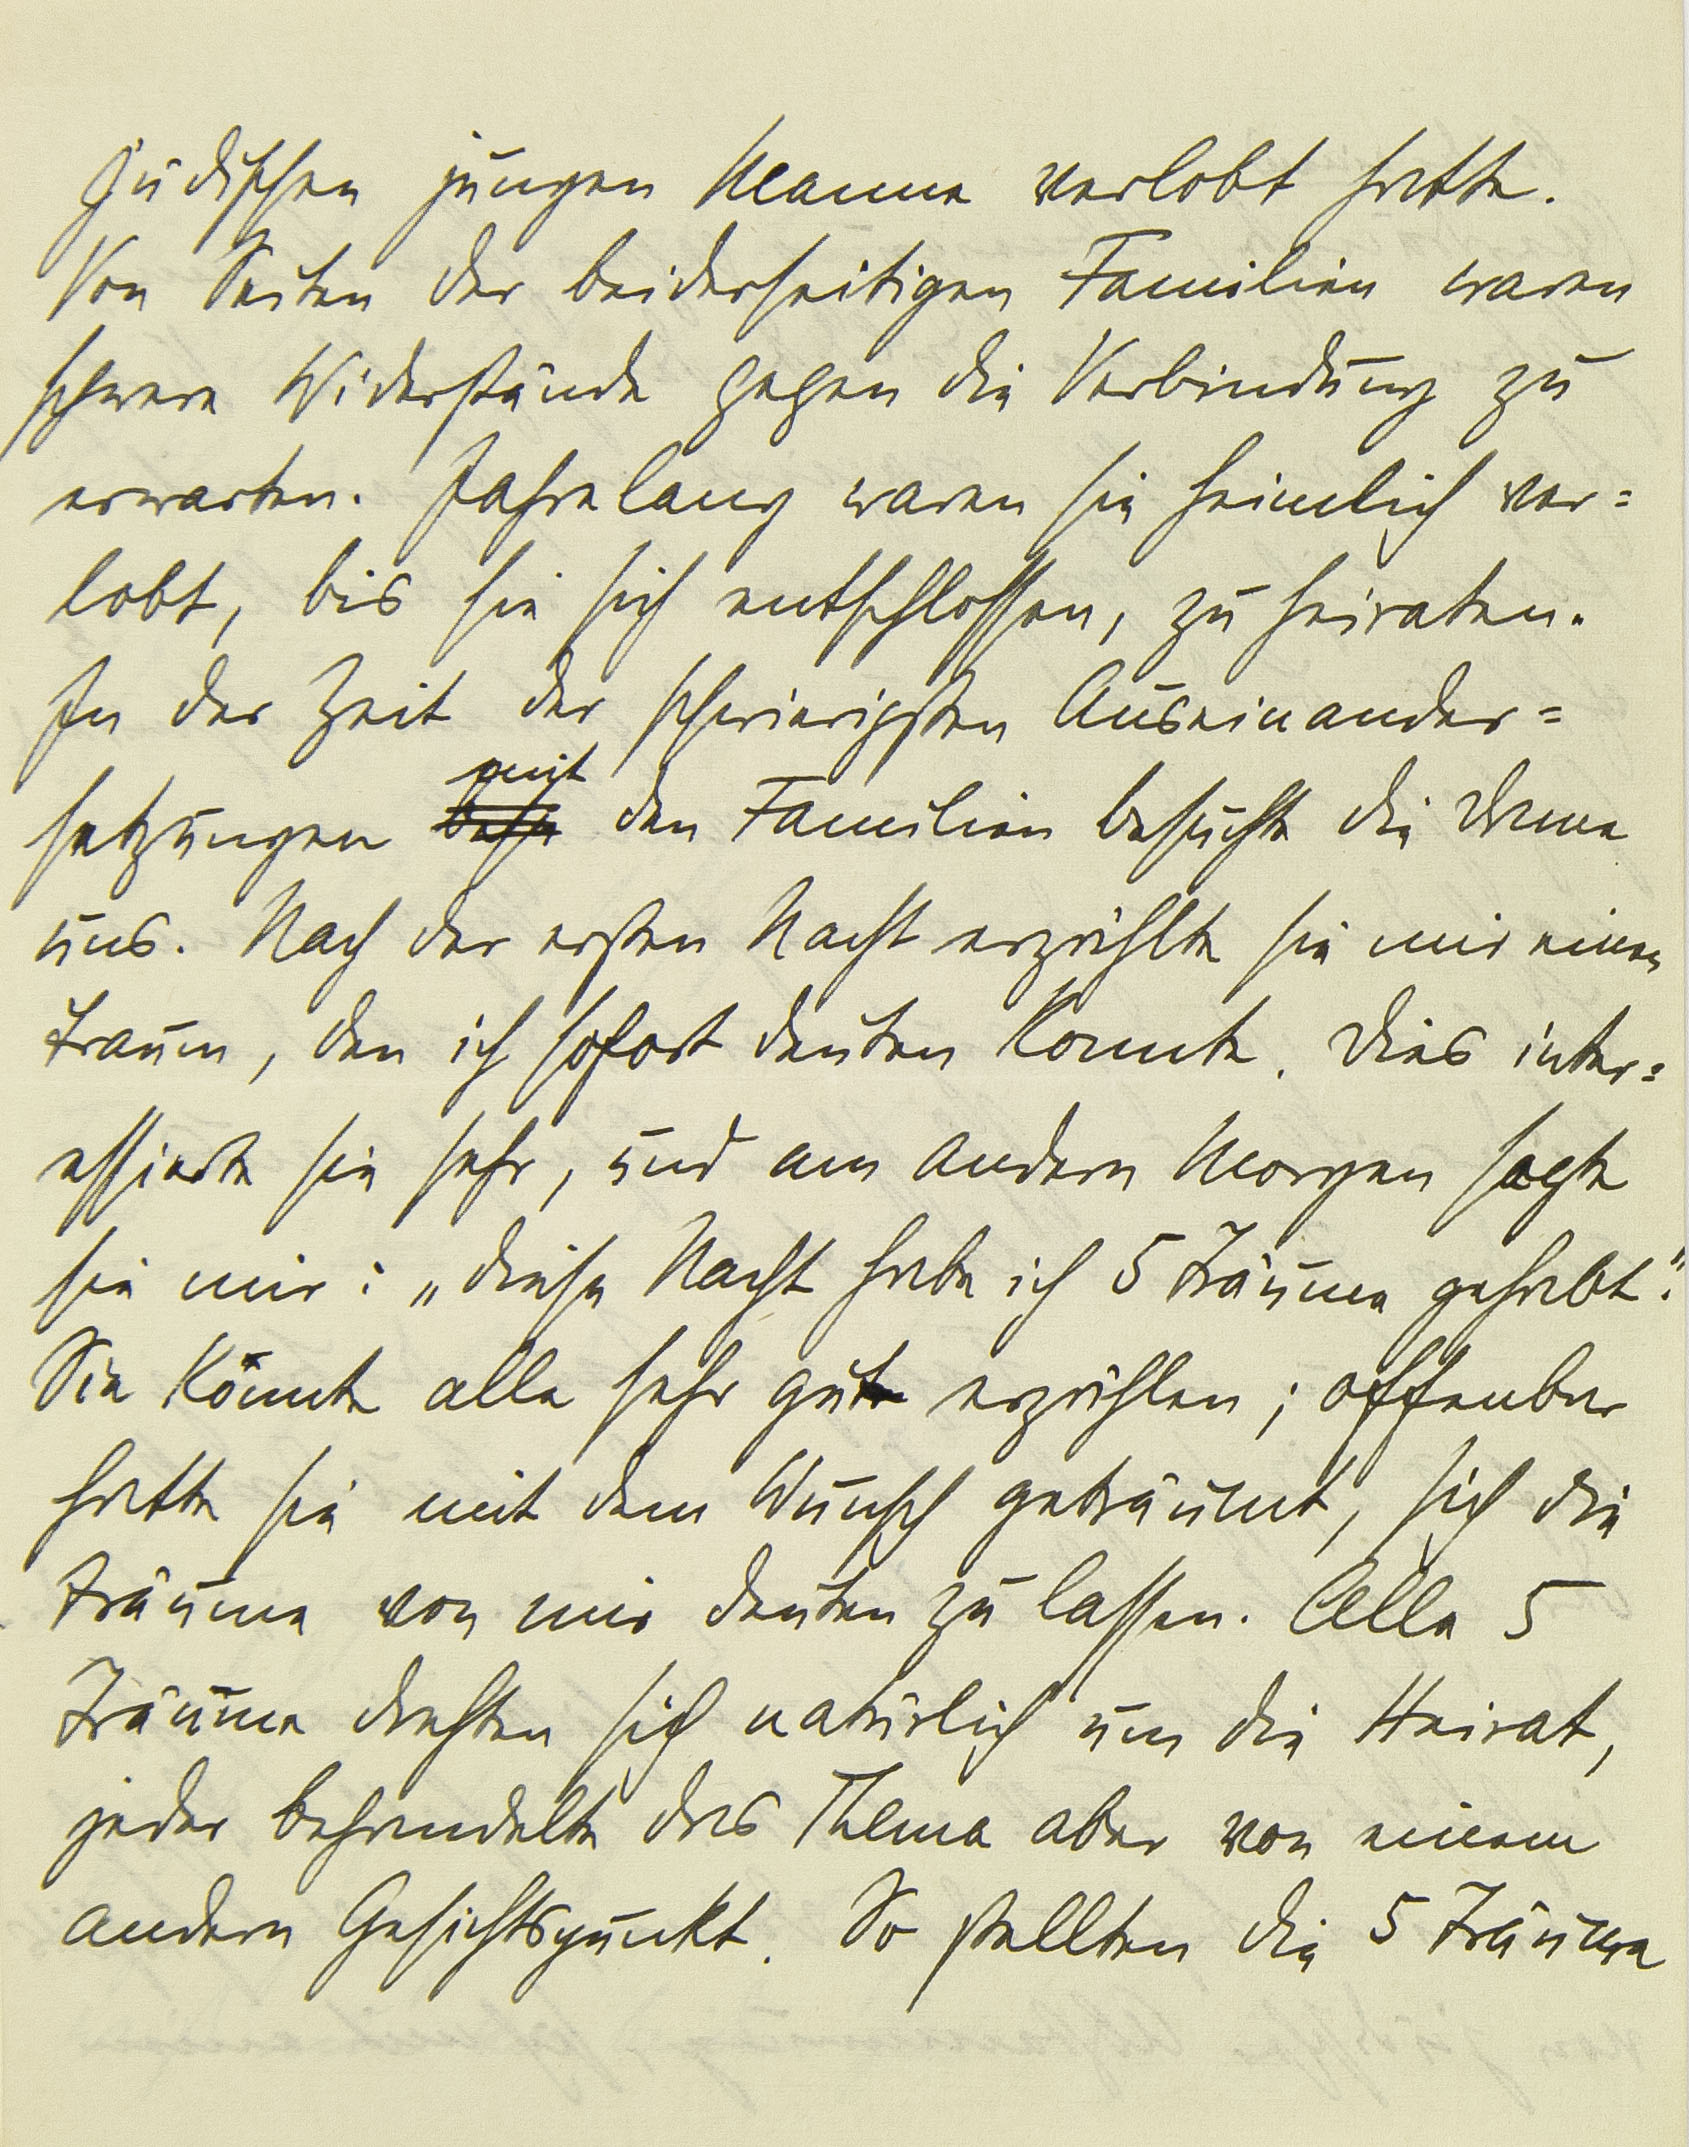 jüdischen jungen Manne verlobt hatte.
Von Seiten der beiderseitigen Familien waren
schwere Widerstände gegen die Verbindung zu
erwarten. Jahrelang waren sie heimlich ver=
lobt, bis sie sich entschlossen, zu heiraten.
In der Zeit der schwierigsten Auseinander=
mit
setzungen besu den Familien besuchte die Dame
uns. Nach der ersten Nacht erzählte sie mir einen
Traum, den ich sofort deuten konnte. Dies inter=
essierte sie sehr, und am andern Morgen sagte
sie mir: „diese Nacht habe ich 5 Träume gehabt".
Sie konnte alle sehr gut erzählen; offenbar
hatte sie mit dem Wunsch geträumt, sich die
Träume von mir deuten zu lassen. Alle 5
Träume drehten sich natürlich um die Heirat,
jeder behandelte das Thema aber von einem
andern Gesichtspunkt. So stellten die 5 Träume